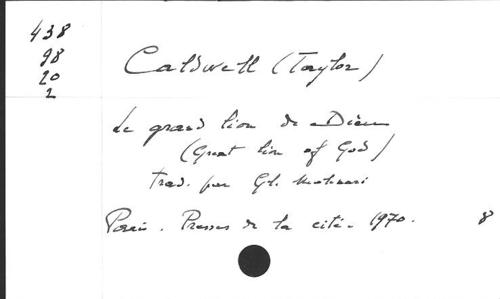 438
98
20
2
Caldwell (Taylor)
Le grand lion de Dieu
(Great lion of God)
trad. par Gl. Molinari
Paris. Presses de la cité. 1970. 8